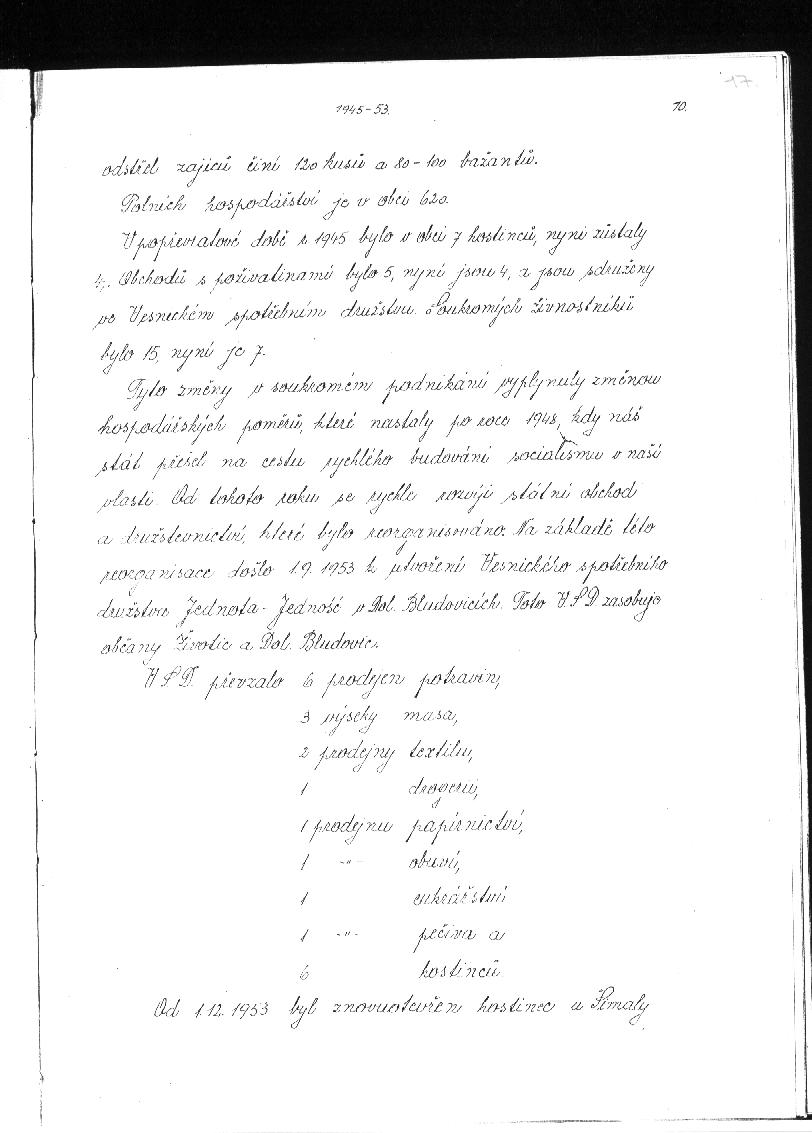 17.
1945-53.
70.
odstřel zajíců činí 120 kusů a 80-100 bažantů.
Polních hospodářství je v obci 620.
V popřevratové době r. 1945 bylo v obci 7 hostinců, nyní zůstaly
4,. Obchodů s poživatinami bylo 5, nyní jsou 4, a jsou sdruženy
ve Vesnickém spotřebním družstvu. Soukromých živnostníků
bylo 15, nyní je 7.
Tyto změny v soukromém podnikání vyplynuly změnou
hospodářských poměrů, které nastaly po roce 1948, kdy náš
stát přešel na cestu rychlého budování socialismu v naší
vlasti. Od tohoto roku se rychle rozvíjí státní obchod
a družstevnictví, které bylo reorganisováno. Na základě této
reorganisace došlo 1.9. 1953 k utvoření Vesnického spotřebního
družstva Jednota-Jedność v Dol. Bludovicích. Toto V.S.D. zásobuje
občany Životic a Dol. Bludovic.
V.S.D. převzalo 6 prodejen potravin,
3 výseky masa,
2 prodejny textilu,
1 drogerii,
1 prodejnu papírnictví,
1 -"- obuvi,
1 cukrářství
1 -"- pečiva a
6 hostinců
Od 1.12. 1953 byl znovuotevřen hostinec u Šimaly